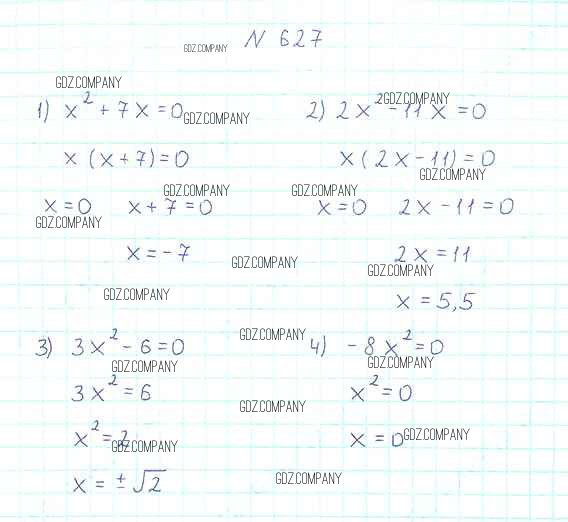 N 627
GDZ.COMPANY
GDZ.COMPANY
1) x² + 7x = 0
GDZ.COMPANY
2) 2x² - 11x = 0
GDZ.COMPANY
x (x + 7) = 0
x (2x - 11) = 0
GDZ.COMPANY
GDZ.COMPANY
GDZ.COMPANY
x = 0 x + 7 = 0
x = 0 2x - 11 = 0
GDZ.COMPANY
x = -7
2x = 11
GDZ.COMPANY
GDZ.COMPANY
GDZ.COMPANY
x = 5,5
3) 3x² - 6 = 0
GDZ.COMPANY
4) -8x² = 0
GDZ.COMPANY
GDZ.COMPANY
3x² = 6
x² = 0
GDZ.COMPANY
x² = 2
GDZ.COMPANY
x = 0
GDZ.COMPANY
x = ±√2
GDZ.COMPANY